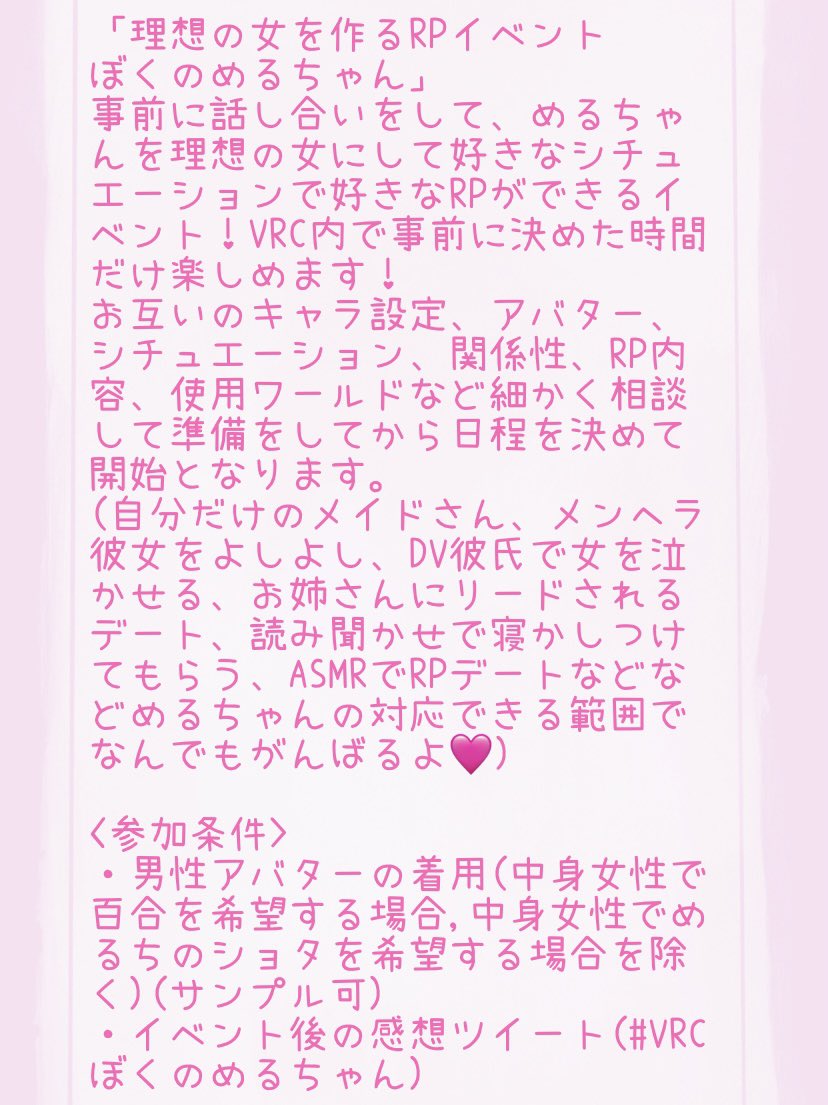 「理想の女を作るRPイベント
ぼくのめるちゃん」
事前に話し合いをして、めるちゃ
んを理想の女にして好きなシチュ
エーションで好きなRPができるイ
ベント！VRC内で事前に決めた時間
だけ楽しめます！
お互いのキャラ設定、アバター、
シチュエーション、関係性、RP内
容、使用ワールドなど細かく相談
して準備をしてから日程を決めて
開始となります。
(自分だけのメイドさん、メンヘラ
彼女をよしよし、DV彼氏で女を泣
かせる、お姉さんにリードされる
デート、読み聞かせで寝かしつけ
てもらう、ASMRでRPデートなどな
どめるちゃんの対応できる範囲で
なんでもがんばるよ💗)
<参加条件>
・男性アバターの着用(中身女性で
百合を希望する場合,中身女性でめ
るちのショタを希望する場合を除
く)(サンプル可)
・イベント後の感想ツイート(#VRC
ぼくのめるちゃん)